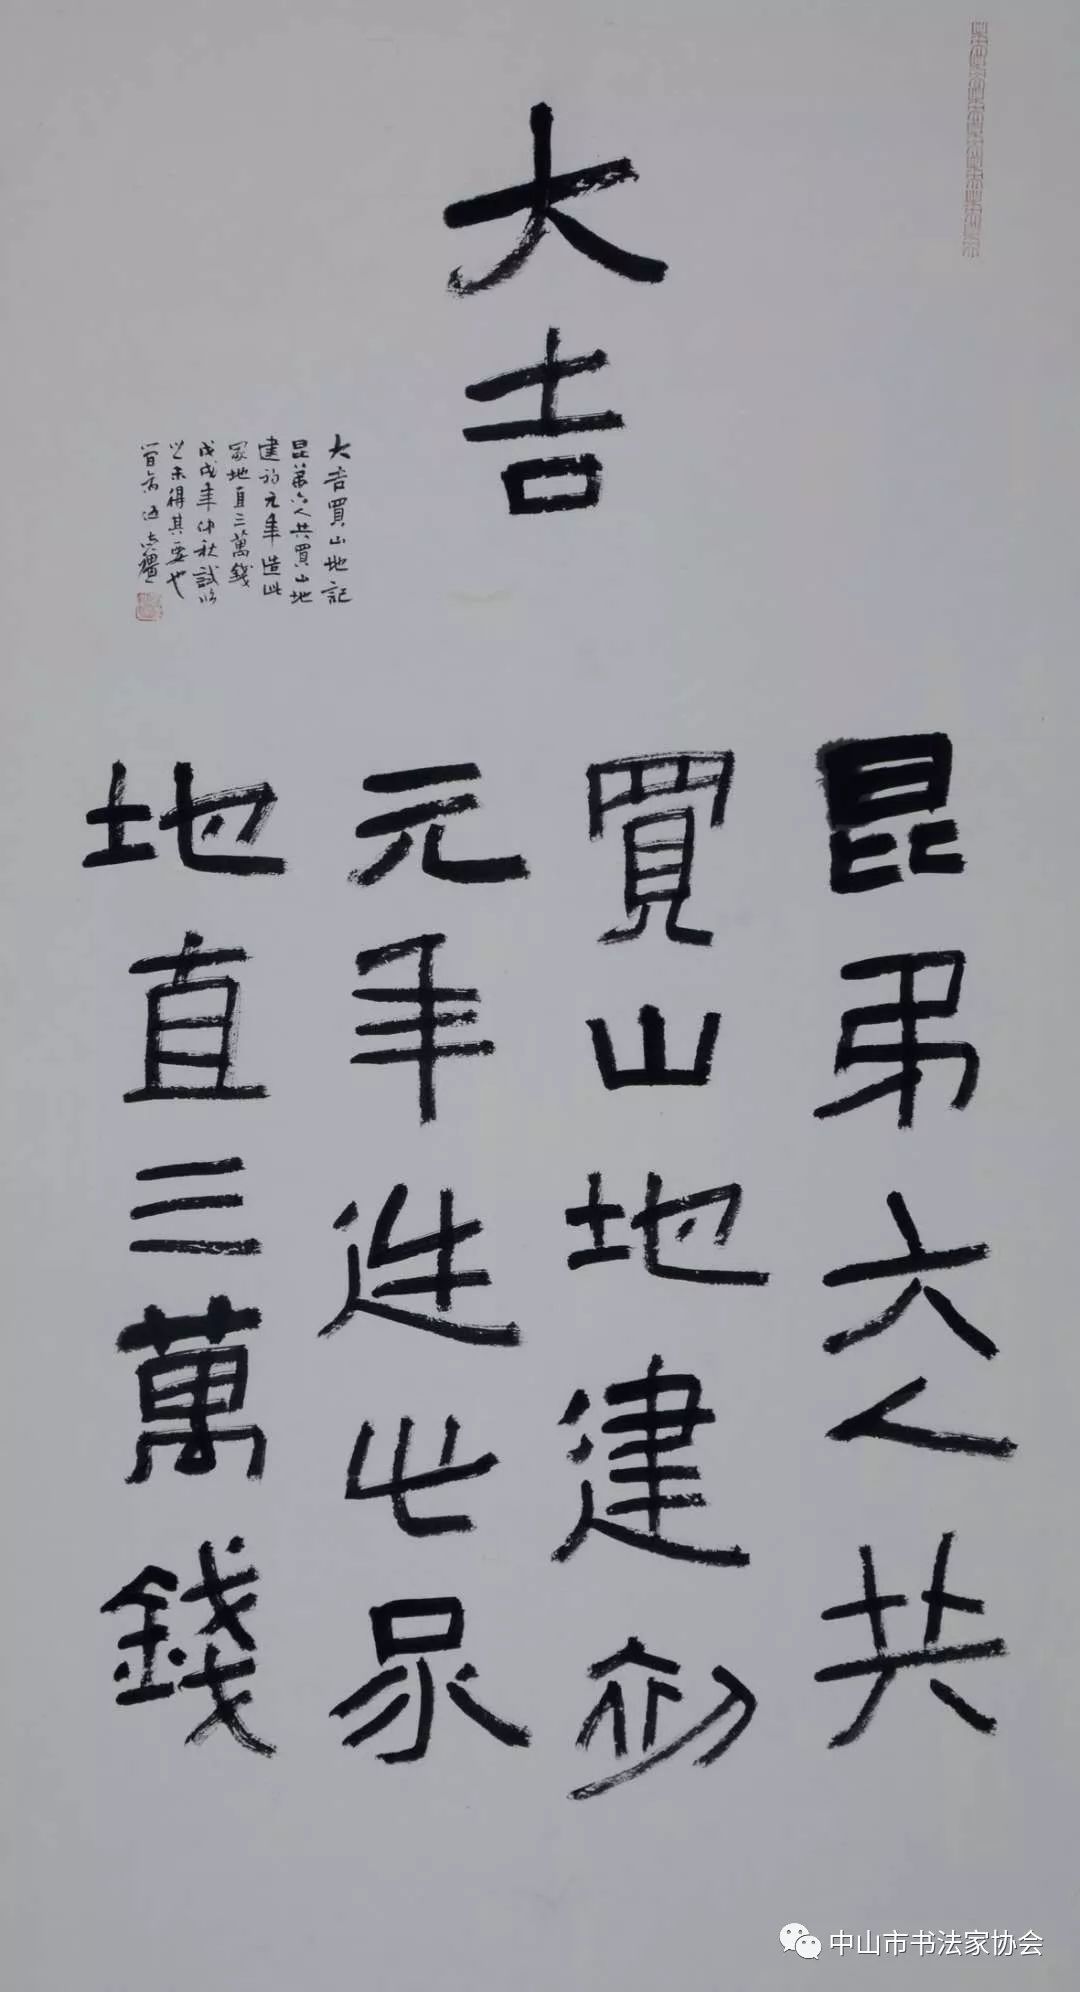 大吉
昆弟六人共
買山地建初
元年造此冢
地直三萬錢
大吉買山地記
昆弟六人共買山地
建初元年造此
冢地直三萬錢
戊戌年仲秋試臨
之未得其要也
中山市书法家协会